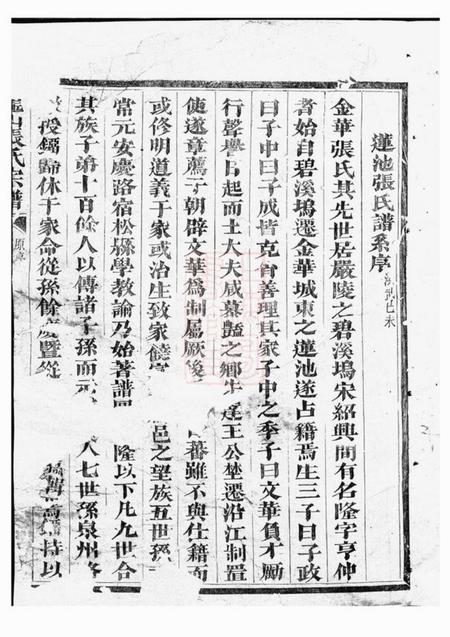 蓮池張氏譜系序 洪武己未
金華張氏其先世居嚴陵之碧溪塢宋紹興間有名隆字亨仲
者始自碧溪塢遷金華城東之蓮池遂占籍焉生三子曰子政
曰子中曰子成皆克肯善理其家子中之季子曰文華負才勵
行聲譽日起而士大夫咸慕豔之鄉 達王公埜遷沿江制置
使遂章薦于朝辟文華為制屬厥後 蕃雖不與仕籍而
或修明道義于家或治生致家饒 邑之望族五世孫
常元安慶路宿松縣學教諭乃始著譜 隆以下凡九世合
其族子弟十百餘人以傳諸子孫而元 八七世孫泉州路
授 歸休于家命從孫餘 暨 持以
張氏宗譜 原序